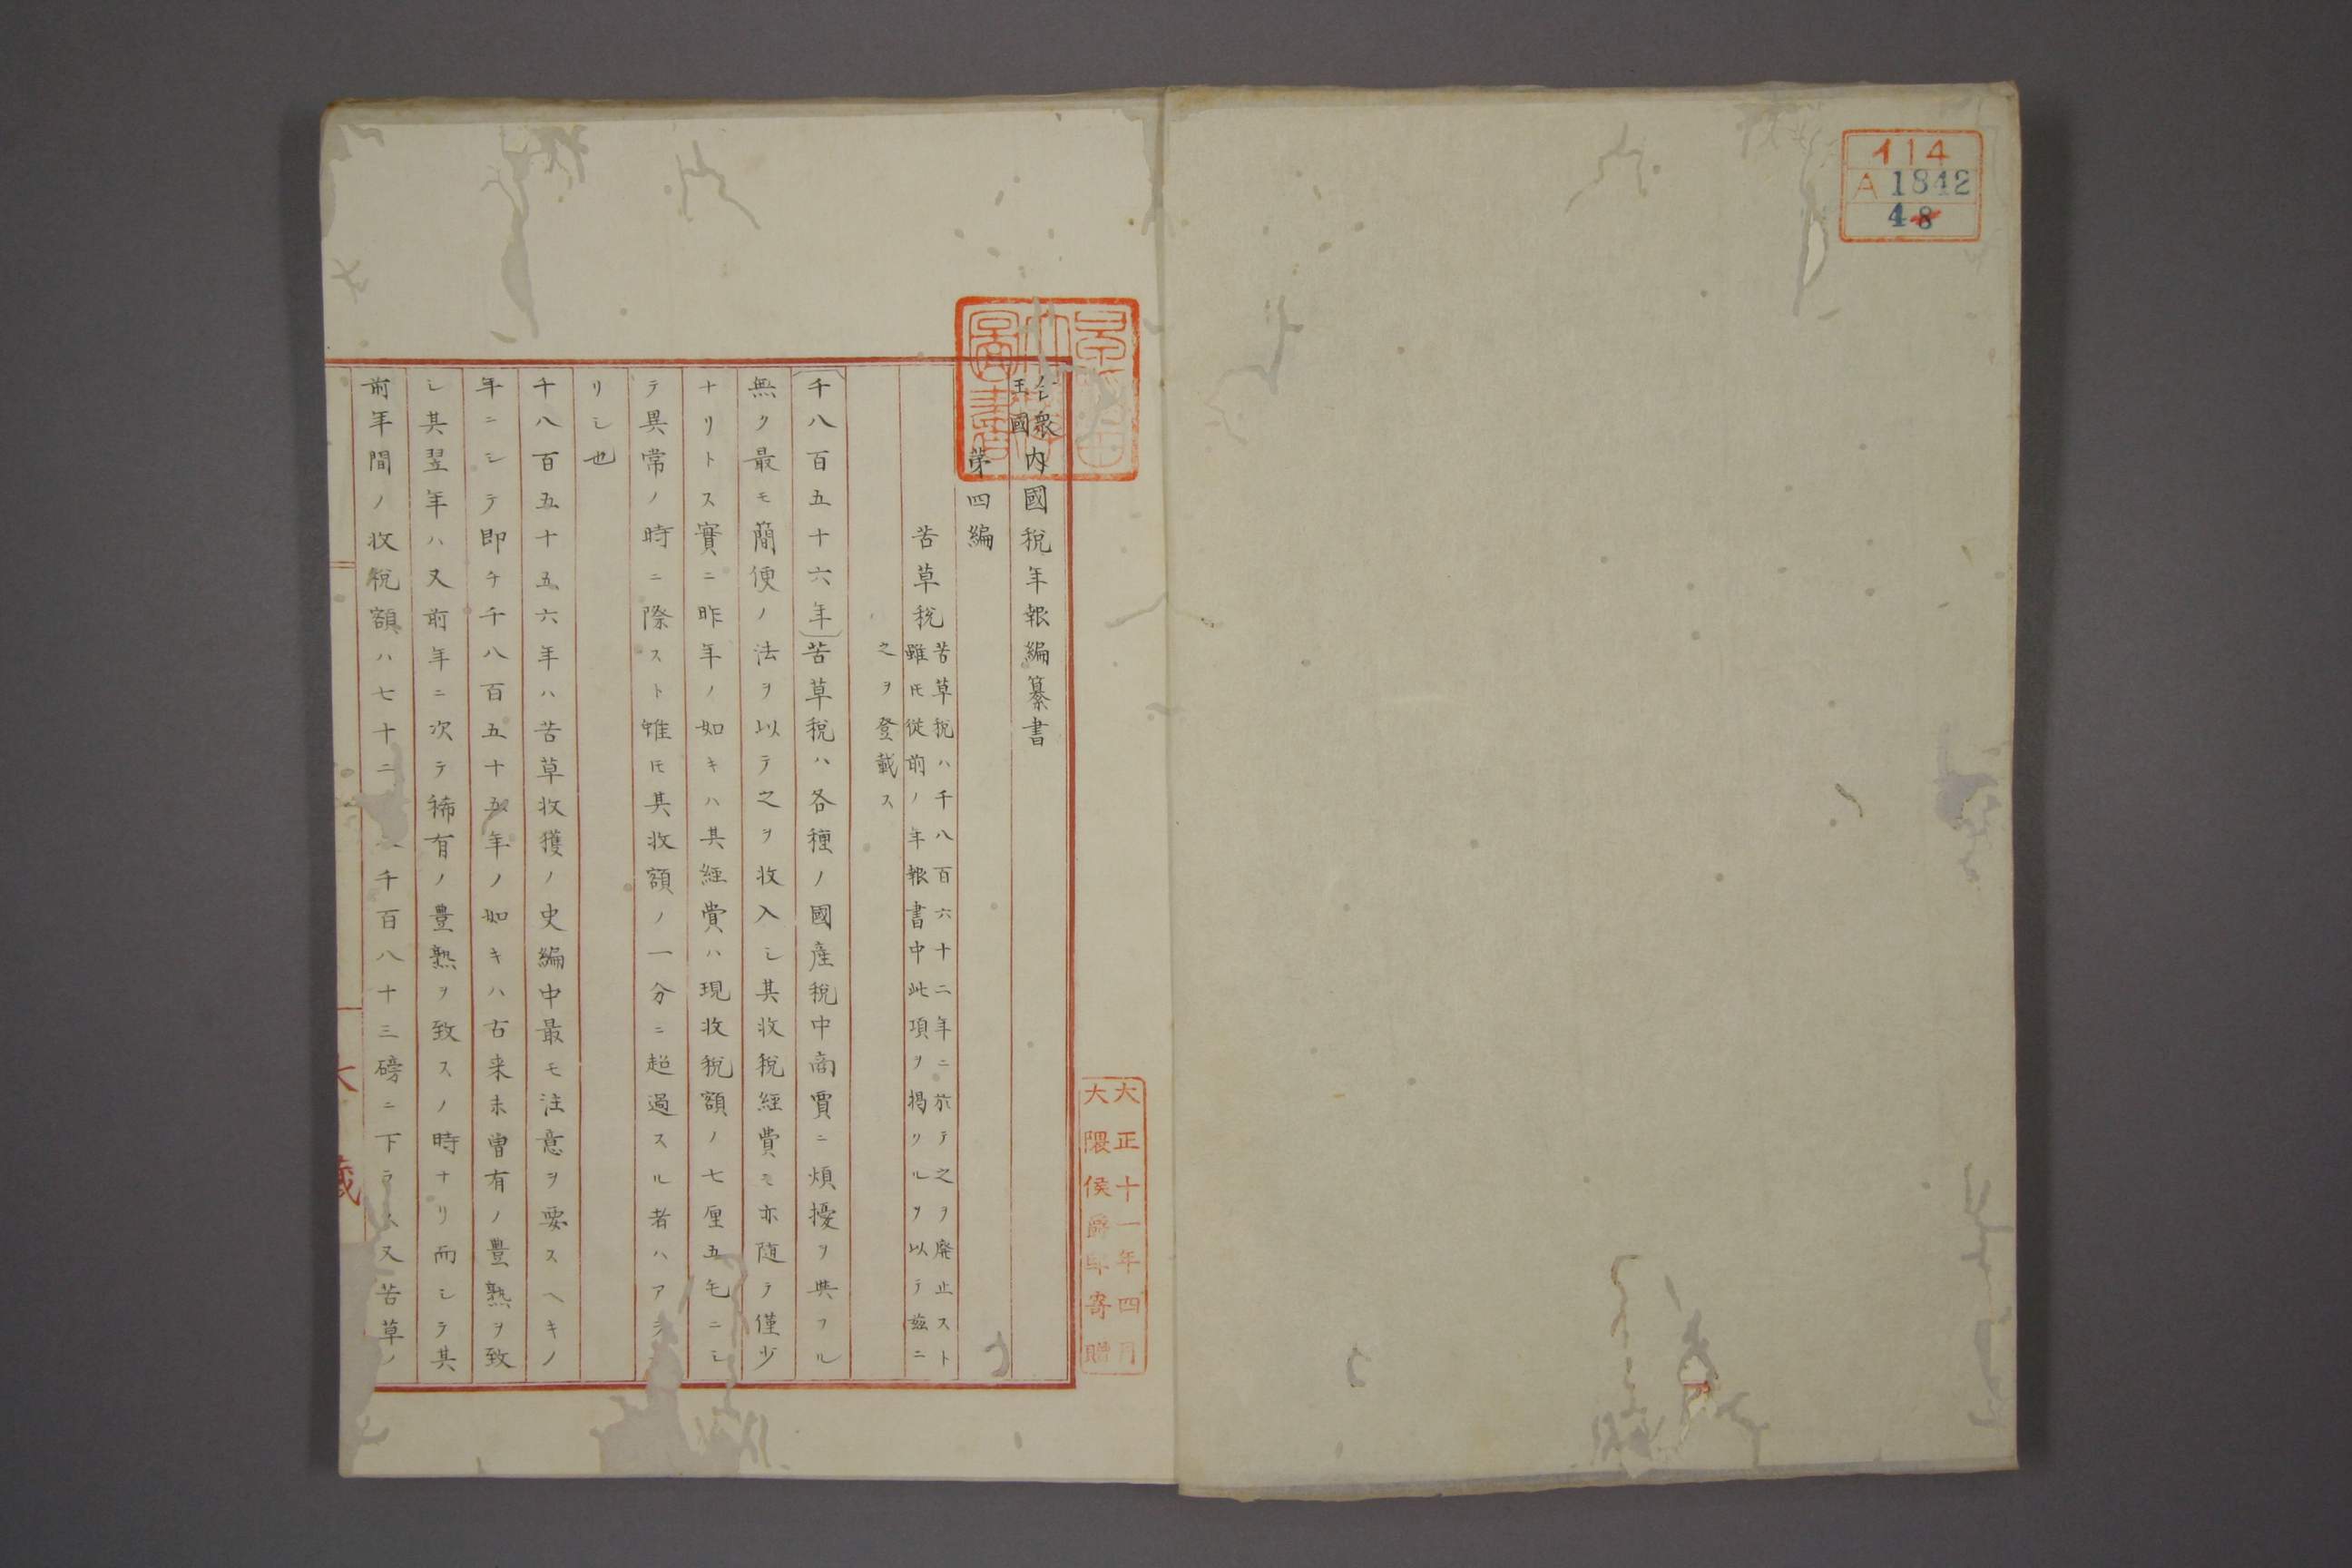 114
A 1842
48
大正十一年四月
大隈侯爵邸寄贈
合衆
王國
内國税年報編纂書
第四編
苦草税
苦草税ハ千八百六十二年ニ於テ之ヲ廃止スト
雖𪜈従前ノ年報書中此項ヲ掲リルヲ以テ茲ニ
之ヲ登載ス
(千八百五十六年)苦草税ハ各種ノ國産税中商賈ニ煩擾ヲ與フル
無ク最モ簡便ノ法ヲ以テ之ヲ收入シ其收税経費モ亦随テ僅少
ナリトス實ニ昨年ノ如キハ其経費ハ現收税額ノ七厘五毛ニシ
テ異常ノ時ニ際スト雖𪜈其收額ノ一分ニ超過スル者ハアラ
リシ也
千八百五十五六年ハ苦草收獲ノ史編中最モ注意ヲ要スヘキノ
年ニシテ即チ千八百五十五年ノ如キハ古来未曽有ノ豊熟ヲ致
シ其翌年ハ又前年ニ次テ稀有ノ豊熟ヲ致スノ時ナリ而シテ其
前年間ノ收税額ハ七十二千百八十三磅ニ下ラス又苦草ノ